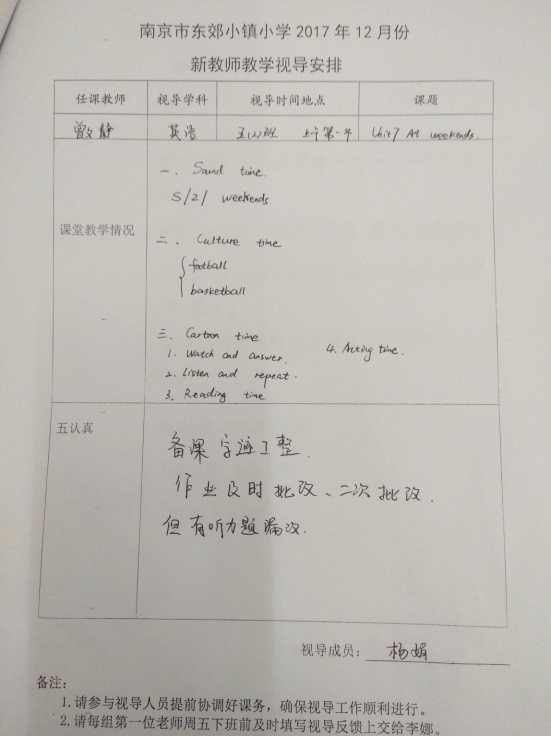 南京市东郊小镇小学2017年12月份
新教师教学视导安排
任课教师 视导学科 视导时间地点 课题
曾文静 英语 五(2)班 上午第一节 Unit7 At weekends.
课堂教学情况
一、Sound time.
S /z/ weekends
二、Culture time
football
basketball
三、Cartoon time
1. Watch and answer. 4. Acting time.
2. Listen and repeat.
3、Reading time
五认真
备课字迹工整.
作业及时批改、二次批改.
但有听力题漏改.
视导成员：杨娟
备注：
1.请参与视导人员提前协调好课务，确保视导工作顺利进行。
2.请每组第一位老师周五下班前及时填写视导反馈上交给李娜。